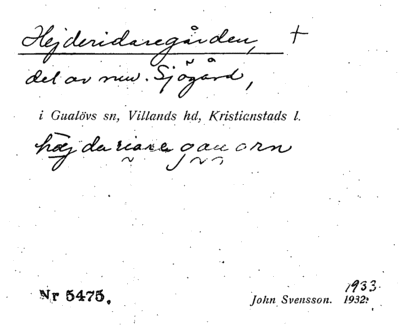 Hejderidaregården, +
del av nuv. Sjögård,
i Gualövs sn, Villands hd, Kristianstads l.
Nr 5475.
1933
John Svensson. 1932.